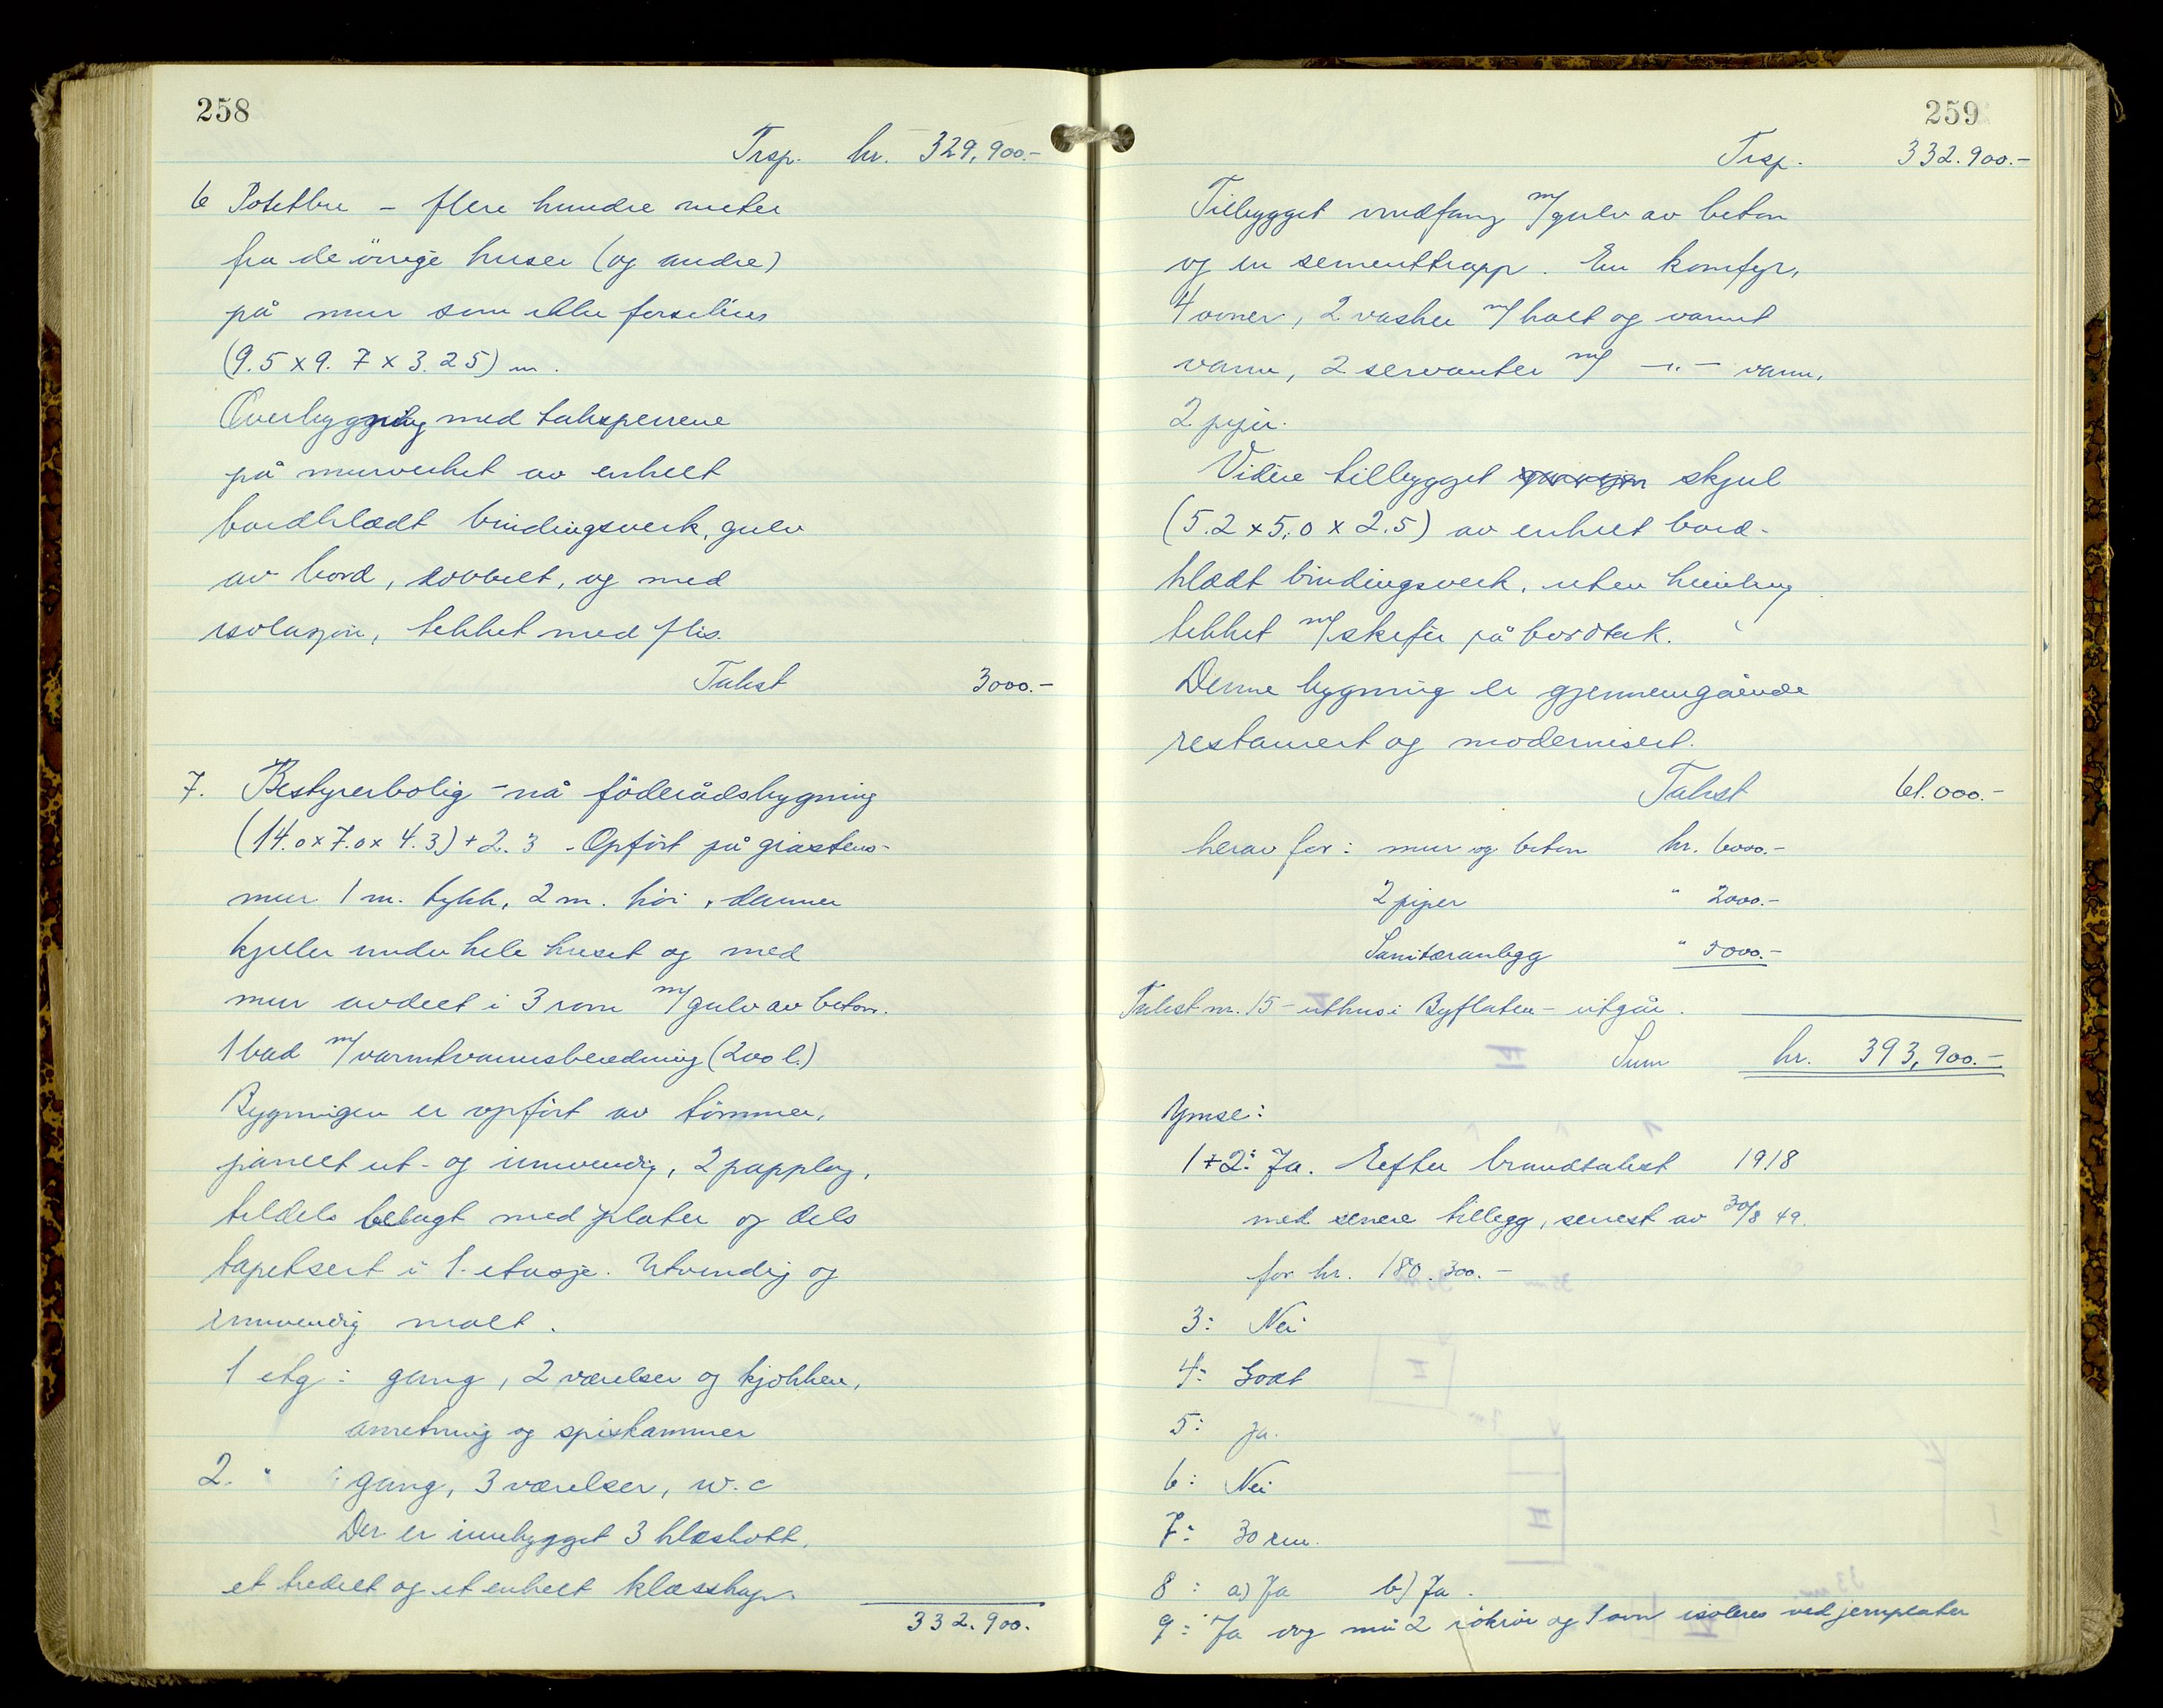 258
Trsp. kr. 329,900.-
6 Potetbu - flere hundre meter
fra de övrige huser (og andre)
på mur som ikke forsikres
(9.5 x 9.7 x 3.25) m.
Overbygning med taksperrene
på murverket av enkelt
bordklædt bindingsverk, gulv
av bord, dobbelt, og med
isolasjon, tekket med flis.
Takst 3000.-
7. Bestyrerbolig - nå föderådsbygning
(14.0 x 7.0 x 4.3) + 2.3 - Opfört på gråstens-
mur 1 m. tykk, 2 m. höi, danner
kjeller under hele huset og med
mur avdelt i 3 rom m/ gulv av beton.
1 bad m/ varmtvannsberedning (200 l.)
Bygningen er opfört av tömmer,
panelt ut- og innvendig, 2 papplag,
tildels belagt med plater og dels
tapetsert i 1. etasje. Utvendig og
innvendig malt.
1 etg: gang, 2 værelser og kjökken,
anretning og spiskammer
2. " : gang, 3 værelser, w.c
Der er innebygget 3 klæskott,
et tredelt og et enkelt klæsskap.
332.900.
259
Trsp. 332.900.-
Tilbygget vindfang m/ gulv av beton
og en sementtrapp. En komfyr,
4 ovner, 2 vasker m/ kalt og varmt
vann, 2 servanter m/ -"- vann,
2 piper.
Videre tilbygget skjul
(5.2 x 5.0 x 2.5) av enkelt bord-
klædt bindingsverk, uten
tekket m/ skifer på bordtak.
Denne bygning er gjennemgående
restaurert og modernisert.
Takst 61.000.-
herav for: mur og beton kr. 6000.-
2 piper " 2000.-
Sanitæranlegg " 5000.-
Takst nr. 15 - uthus i Byflaten - utgår.
Sum kr. 393,900.-
Ymse:
1+2: Ja. Efter brandtakst 1918
med senere tillegg, senest av 30/8 49.
for kr. 180.300.-
3: Nei
4: Godt
5: Ja.
6: Nei
7: 30 cm.
8: a) Ja b) Ja.
9: Ja dog må 2 rökrör og 1 ovn isoleres ved jernplater